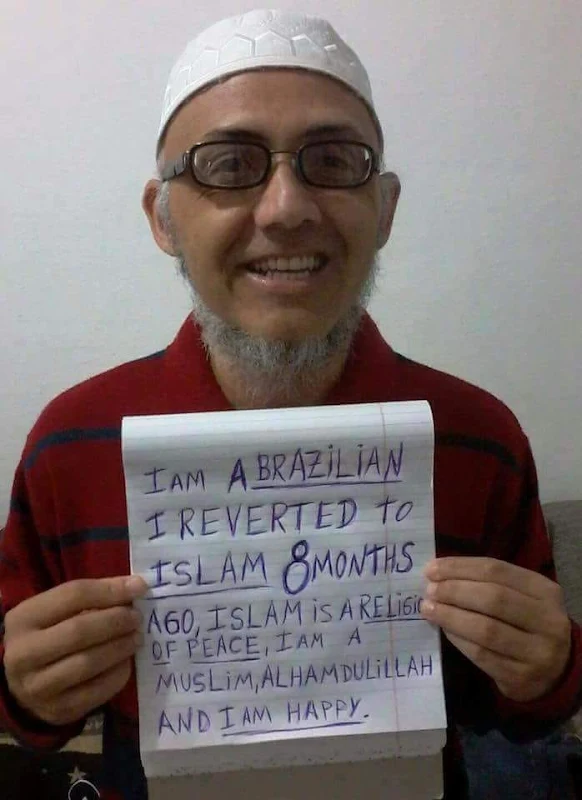 I AM A BRAZILIAN
I REVERTED TO
ISLAM 8 MONTHS
AGO, ISLAM IS A RELIGIO
OF PEACE, I AM A
MUSLIM, ALHAMDULILLAH
AND I AM HAPPY.